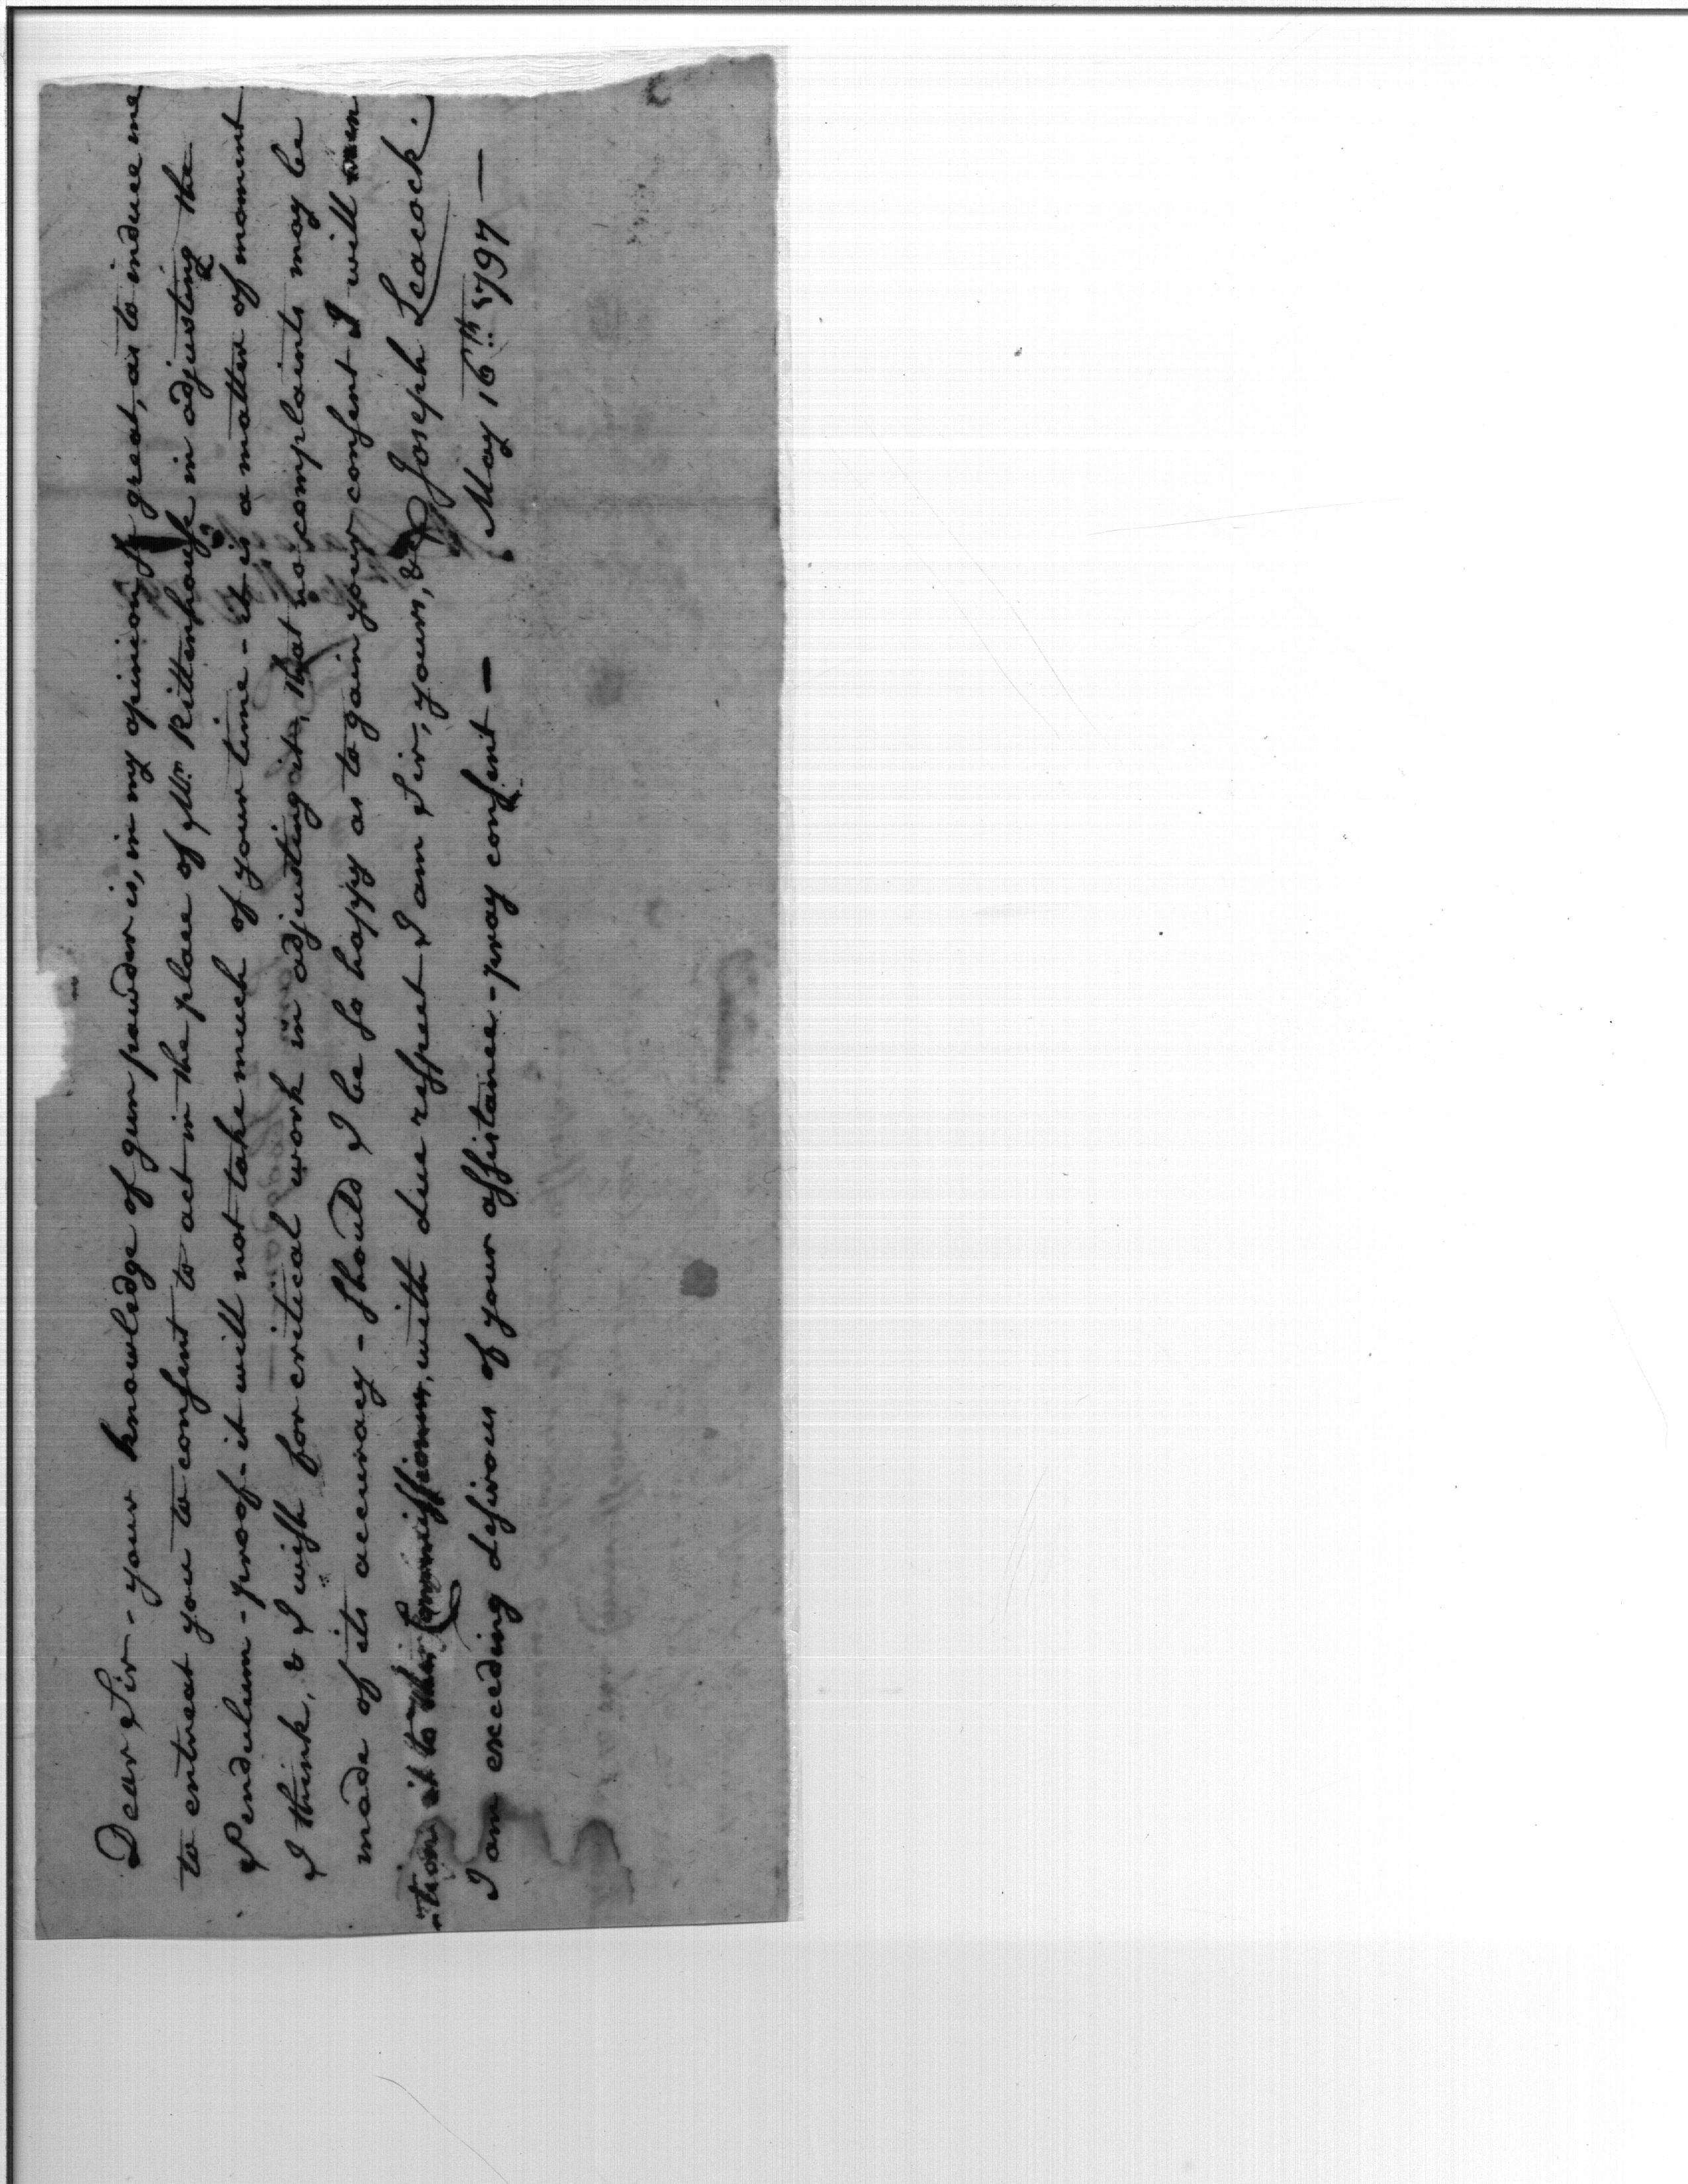 Dear Sir - your knowledge of gun powder is, in my opinion so great, as to induce me
to entreat you to consent to act in the place of Mr. Rittenhouse in adjusting the
Pendulum - proof - it will not take much of your time - it is a matter of moment
I think, & I wish for critical work in adjusting it, that no complaints may be
made of its accuracy - should I be so happy as to gain your consent I will men
-tion it to the Commissioner, with due respect I am Sir, yours, & Joseph Leacock.
I am exceeding desirous of your assistance - pray consent — May 16th 1797 —